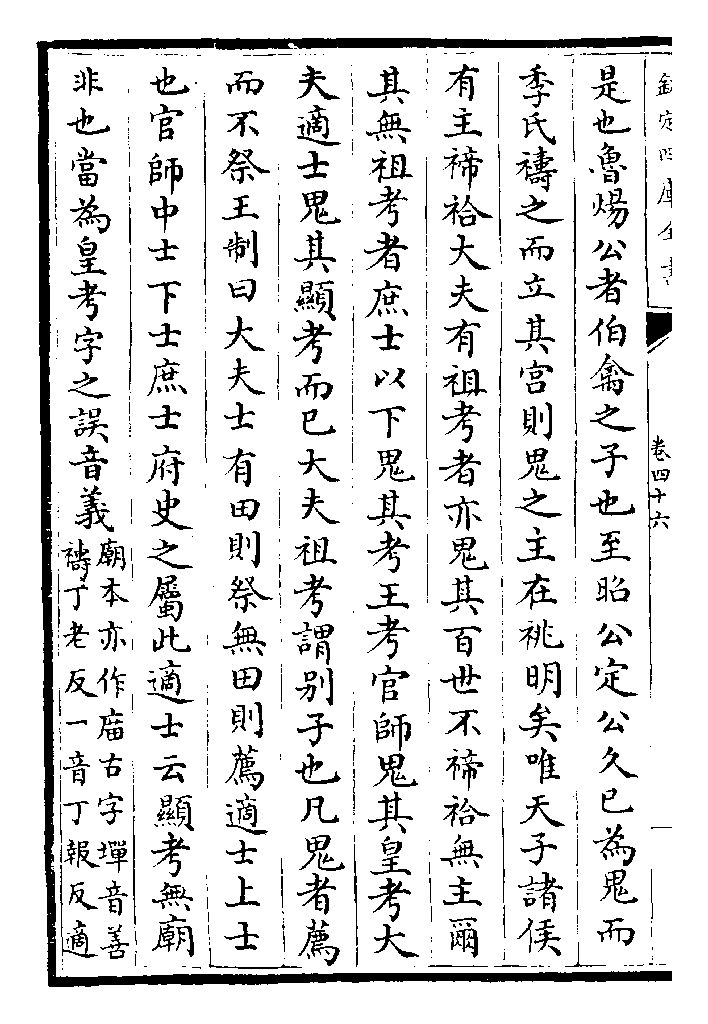 欽定四庫全書
卷四十六
是也魯煬公者伯禽之子也至昭公定公久已為鬼而
季氏禱之而立其宫則鬼之主在祧明矣唯天子諸侯
有主禘祫大夫有祖考者亦鬼其百世不禘祫無主爾
其無祖考者庶士以下鬼其考王考官師鬼其皇考大
夫適士鬼其顯考而已大夫祖考謂别子也凡鬼者薦
而不祭王制曰大夫士有田則祭無田則薦適士上士
也官師中士下士庶士府史之屬此適士云顯考無廟
非也當為皇考字之誤音義
廟本亦作庿古字墠音善
禱丁老反一音丁報反適